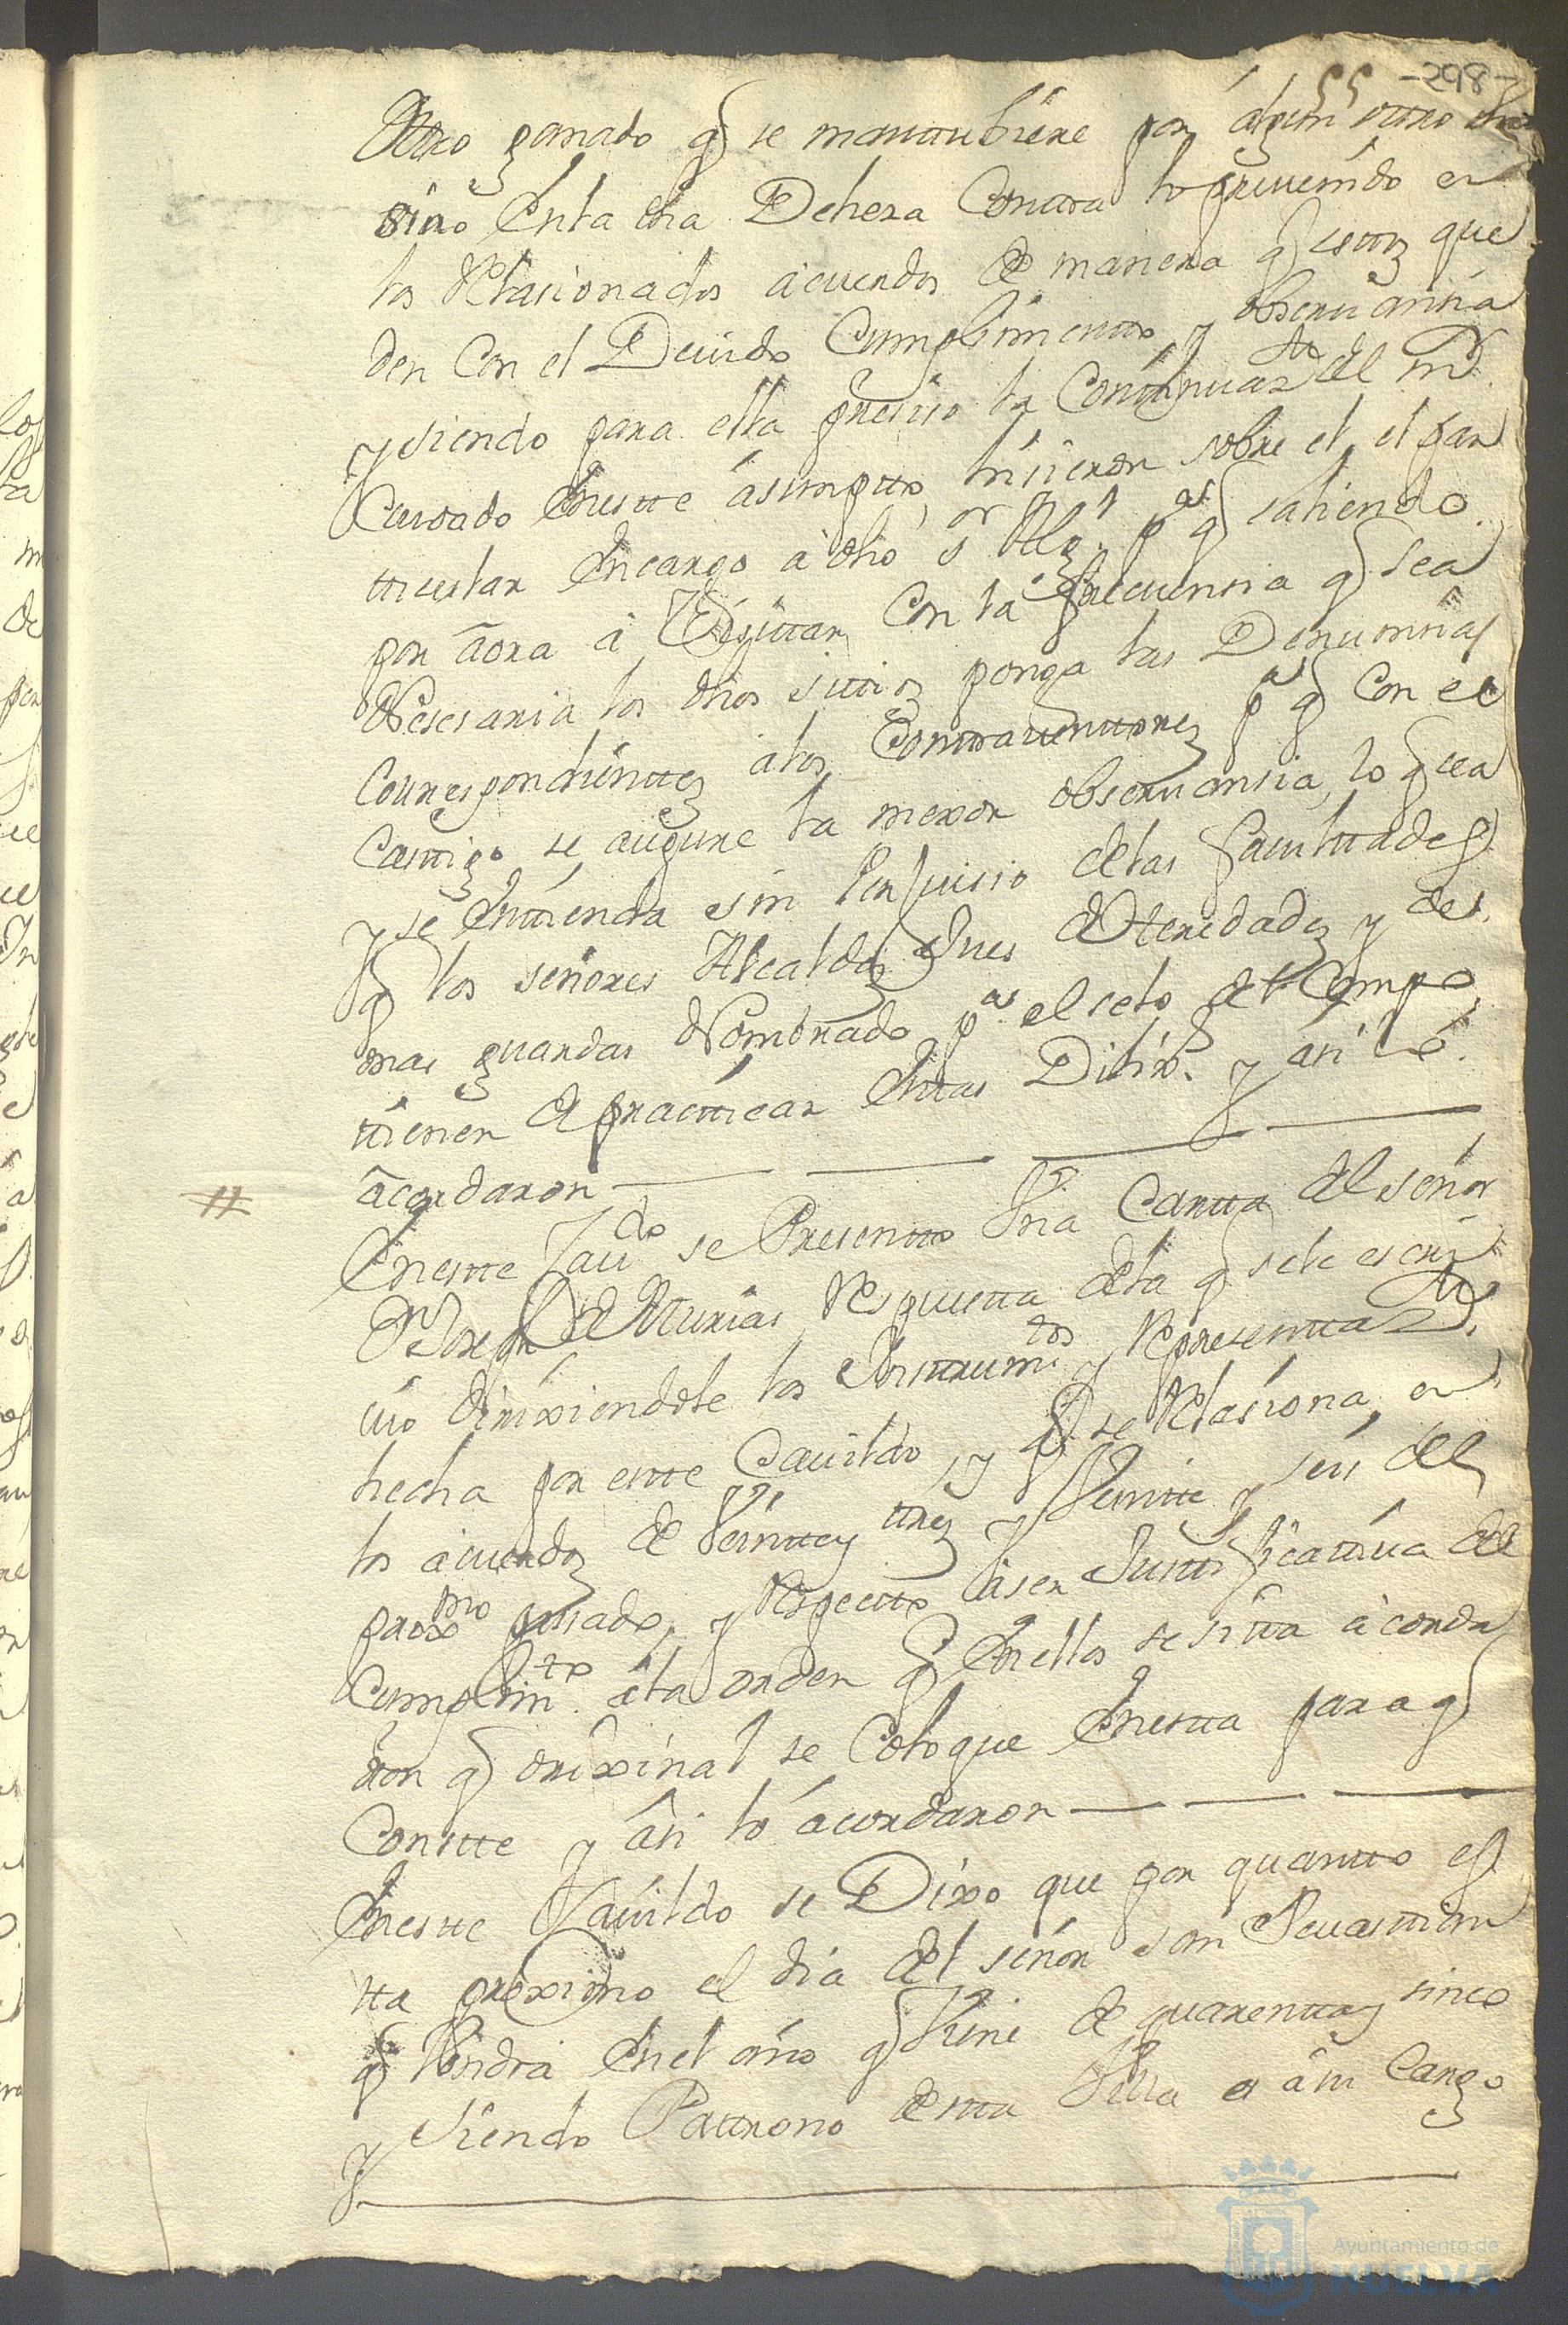 55 -298-
Otro ganado q se mantubiere por algun otro
sino Enla dha Dehera Contra lo preuenido en
los Relasionados acuerdos de manera q esttos que
den Con el Deuido Cumplimiento y obseruansia
y siendo para ella presiso la Continuaz.on del m.r
Cuidado Eneste asumptto, hisieron sobre el, el par
ticular Encargo a dho s.or p.a q saliendo
por aora a Visittar Con la frecuensia q sea
Nesesaria los dhos sittios ponga las Denunsias
Correspondienttes alos Contrauenttores p.a q Con el
Casttigo se asigure la mexor obseruansia, lo q sea
y se Enttienda sin Perjuisio delas facultades
q los señores Alcaldes Jues de Heredades y de
mas guardas Nombrados p.a el selo del Campo
tienen de practticar Esttas Dilix.s y asi lo
acordaron
# Enestte Cau.do se Presentto Vna Cartta del señor
D.n Joseph de Asturias Respuesta dela q sele escri
uio dirixiendole los Instrum.tos y Representtaz.on
hecha por estte Cauildo, y q se Relasiona en
los acuerdos de Veintte y tres y Veintte y seis del
prox.mo pasado, y Respectto aser Justtificatiua del
Cumplim.to ala orden q Enellos se sitta acorda
ron q orixinal se Coloque Enestta para q
Constte y asi lo acordaron
Enestte Cauildo se Dixo que por quantto es
tta proximo el dia del señor san Seuasttian
q Vendra Enel año q Viene de quarentta y sinco
y siendo Pattrono destta Villa a su Cargo
Ayuntamiento de
HUELVA